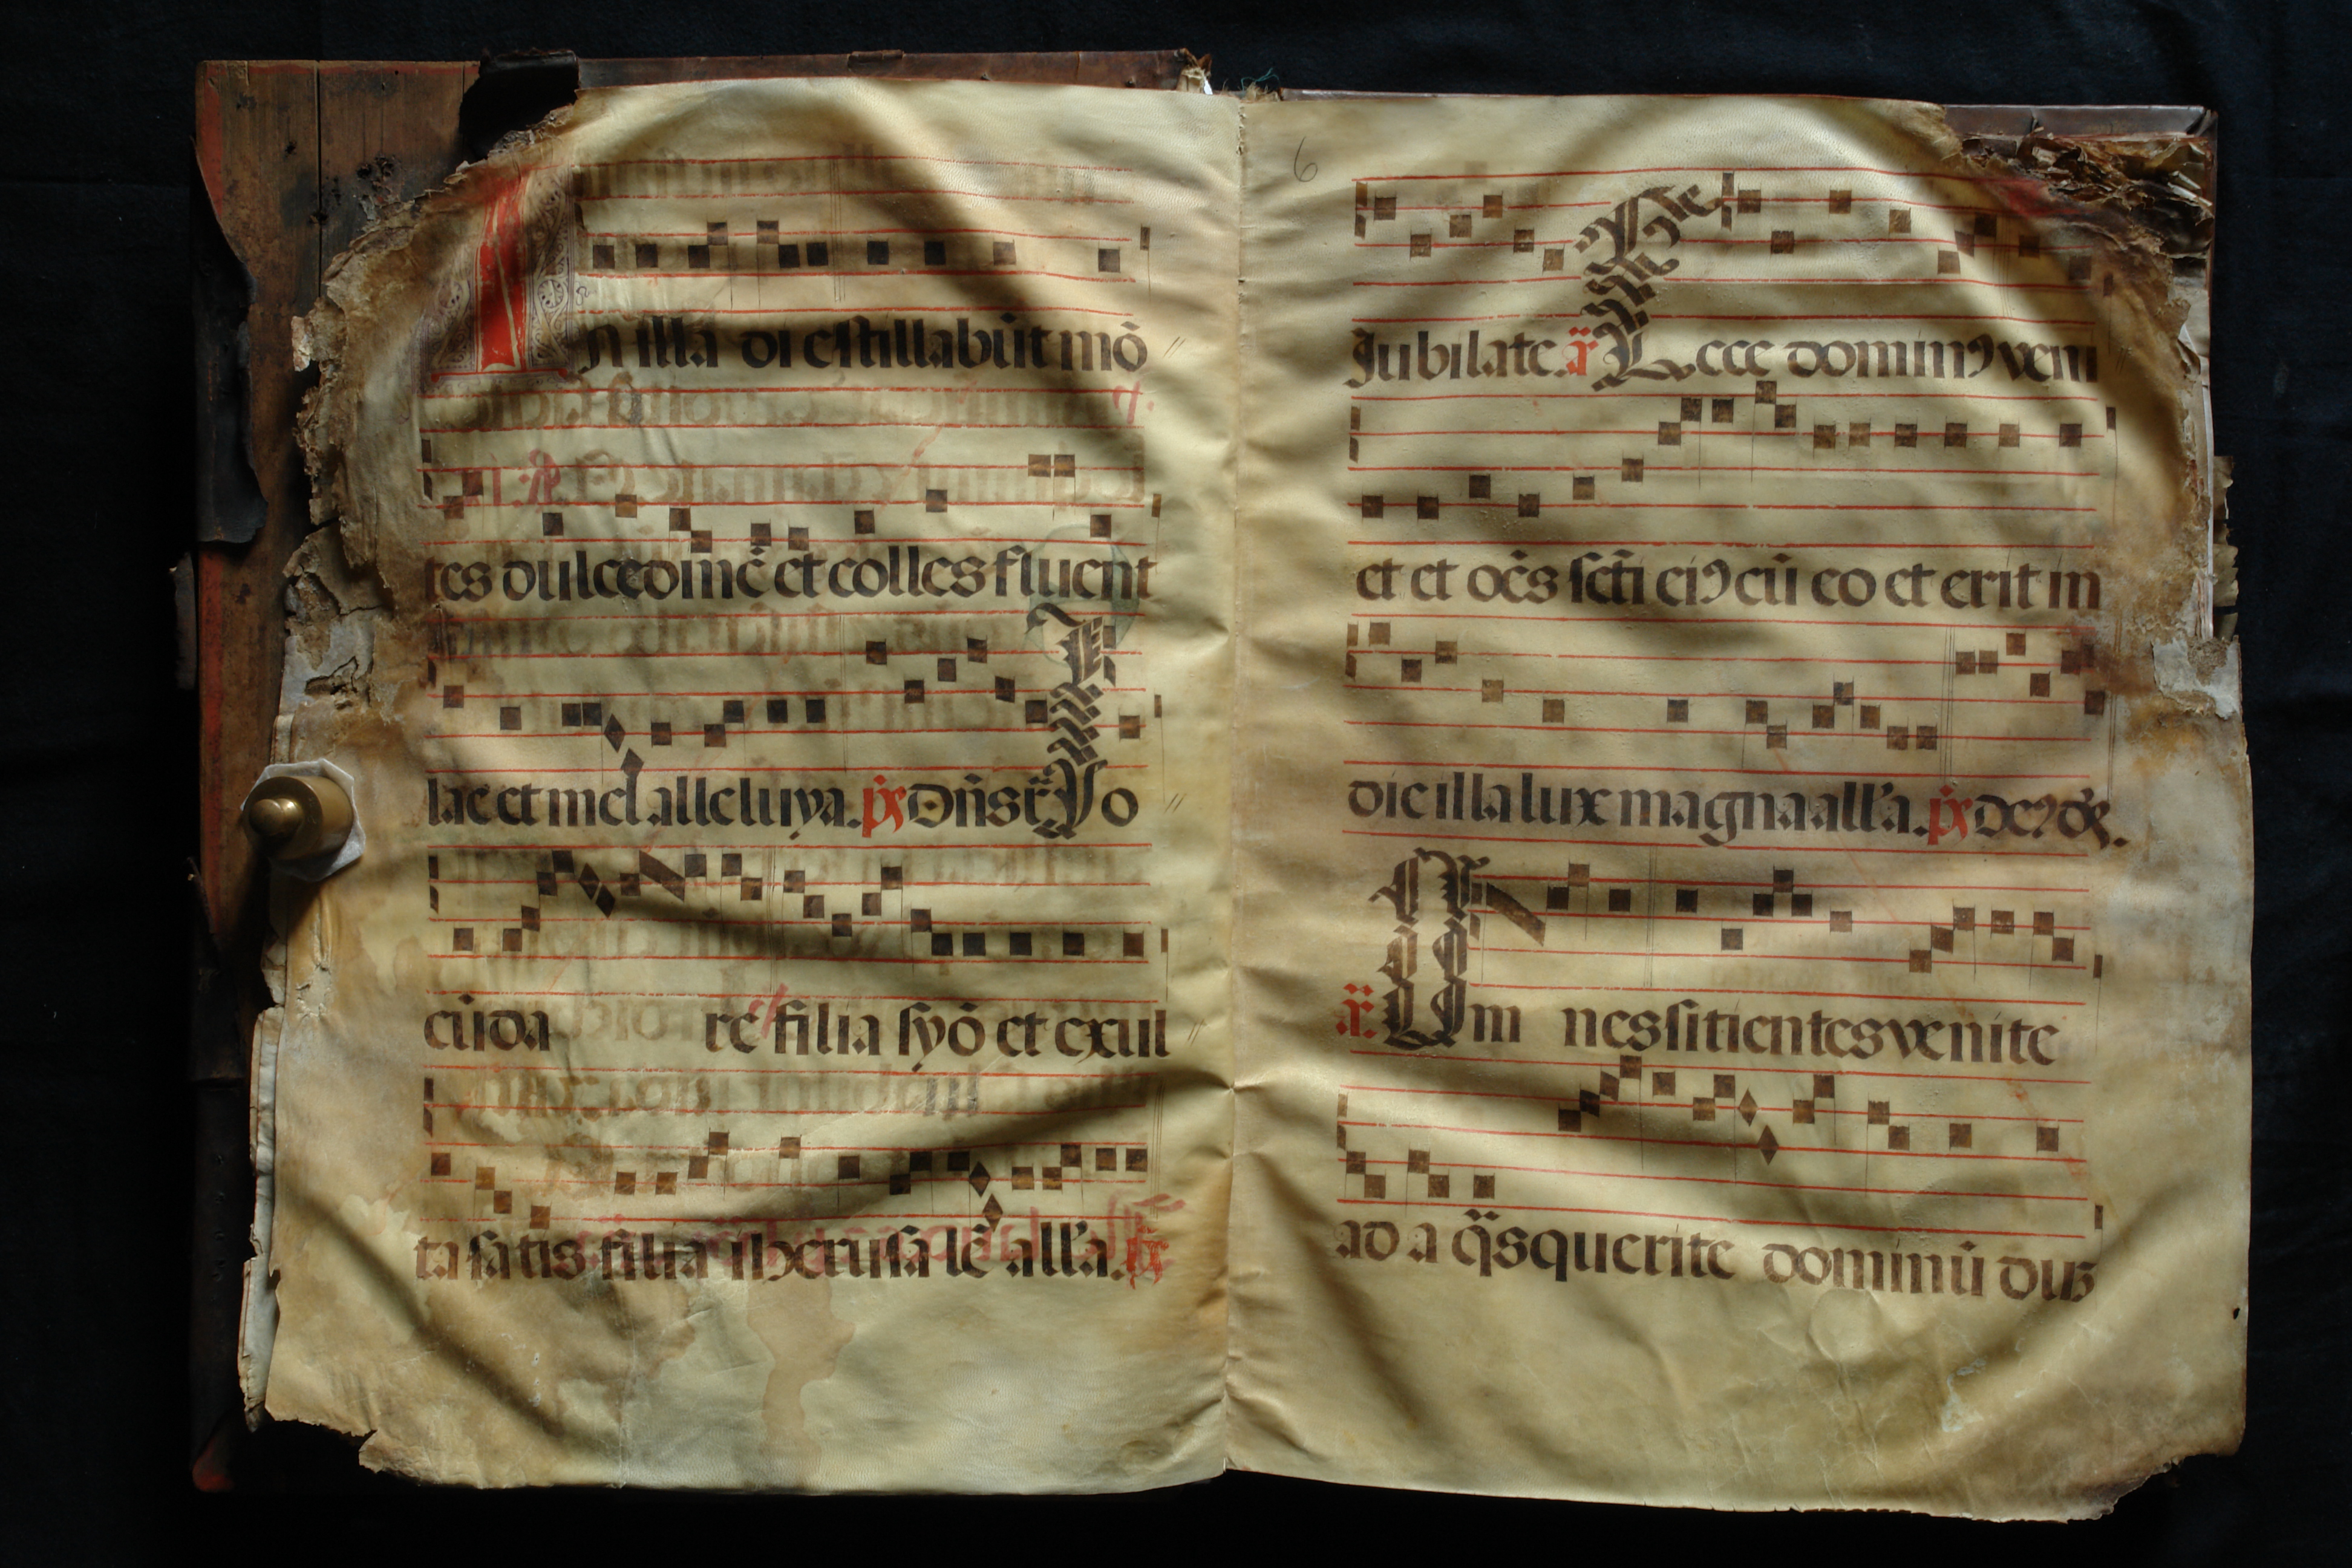 In illa di estillabūt mō
tes dulcedinē et colles fluent
lac et mel alleluya. p̄s Dn̄s r̄ Io
cūda re filia syō et exul
ta satis filia iherusalē all'a. ps
6
Jubilate. ā Ecce dominꝰ veni
et et oēs sctī eiꝰ cū eo et erit in
die illa lux magna all'a. ps
ā Om nes sitientes venite
ad a q̄s querite dominū dum